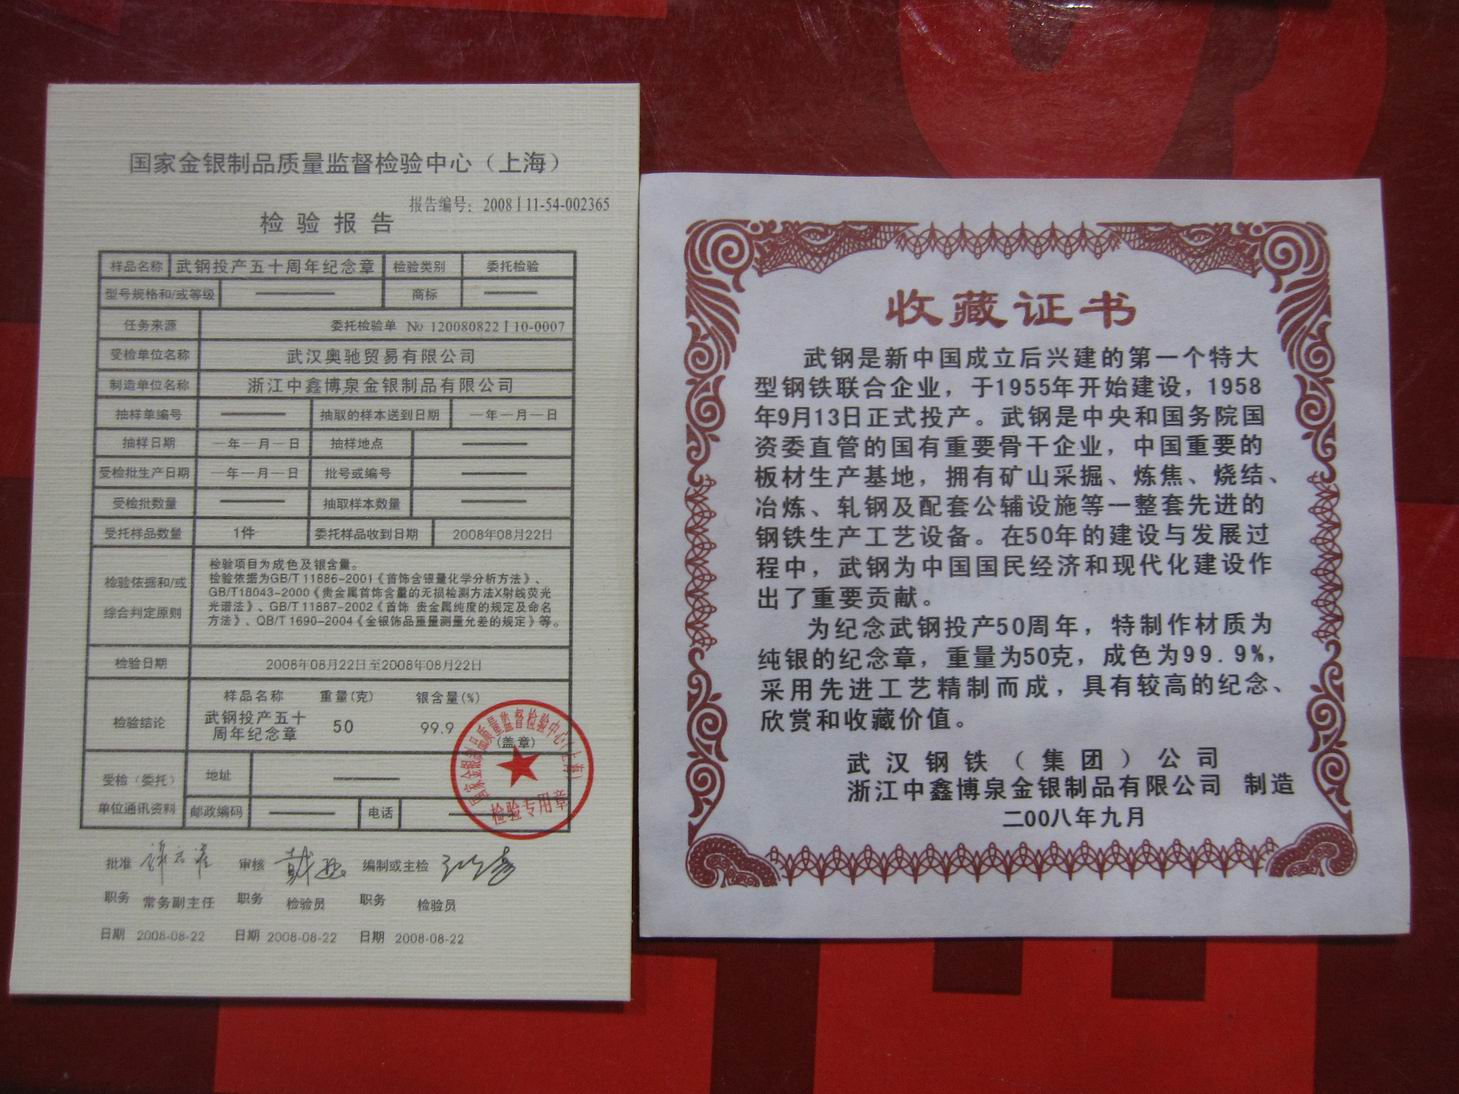 国家金银制品质量监督检验中心（上海）
报告编号：2008 | 11-54-002365
检验报告
样品名称 武钢投产五十周年纪念章 检验类别 委托检验
型号规格和/或等级 —— 商标 ——
任务来源 委托检验单 № 120080822 | 10-0007
受检单位名称 武汉奥驰贸易有限公司
制造单位名称 浙江中鑫博泉金银制品有限公司
抽样单编号 —— 抽取的样本送到日期 —年—月—日
抽样日期 —年—月—日 抽样地点 ——
受检批生产日期 —年—月—日 批号或编号 ——
受检批数量 —— 抽取样本数量 ——
受托样品数量 1件 委托样品收到日期 2008年08月22日
检验依据和/或
综合判定原则
检验项目为成色及银含量。
检验依据为GB/T 11886-2001《首饰含银量化学分析方法》、
GB/T18043-2000《贵金属首饰含量的无损检测方法X射线荧光
光谱法》、GB/T 11887-2002《首饰 贵金属纯度的规定及命名
方法》、QB/T 1690-2004《金银饰品重量测量允差的规定》等。
检验日期 2008年08月22日至2008年08月22日
检验结论
样品名称 重量(克) 银含量(%)
武钢投产五十 50 99.9
周年纪念章
(盖章)
国家金银制品质量监督检验中心（上海）
检验专用章
受检（委托） 地址 ——
单位通讯资料 邮政编码 —— 电话 ——
批准 审核 编制或主检
职务 常务副主任 职务 检验员 职务 检验员
日期 2008-08-22 日期 2008-08-22 日期 2008-08-22
收藏证书
武钢是新中国成立后兴建的第一个特大
型钢铁联合企业，于1955年开始建设，1958
年9月13日正式投产。武钢是中央和国务院国
资委直管的国有重要骨干企业，中国重要的
板材生产基地，拥有矿山采掘、炼焦、烧结、
冶炼、轧钢及配套公辅设施等一整套先进的
钢铁生产工艺设备。在50年的建设与发展过
程中，武钢为中国国民经济和现代化建设作
出了重要贡献。
为纪念武钢投产50周年，特制作材质为
纯银的纪念章，重量为50克，成色为99.9%，
采用先进工艺精制而成，具有较高的纪念、
欣赏和收藏价值。
武汉钢铁（集团）公司
浙江中鑫博泉金银制品有限公司 制造
二00八年九月